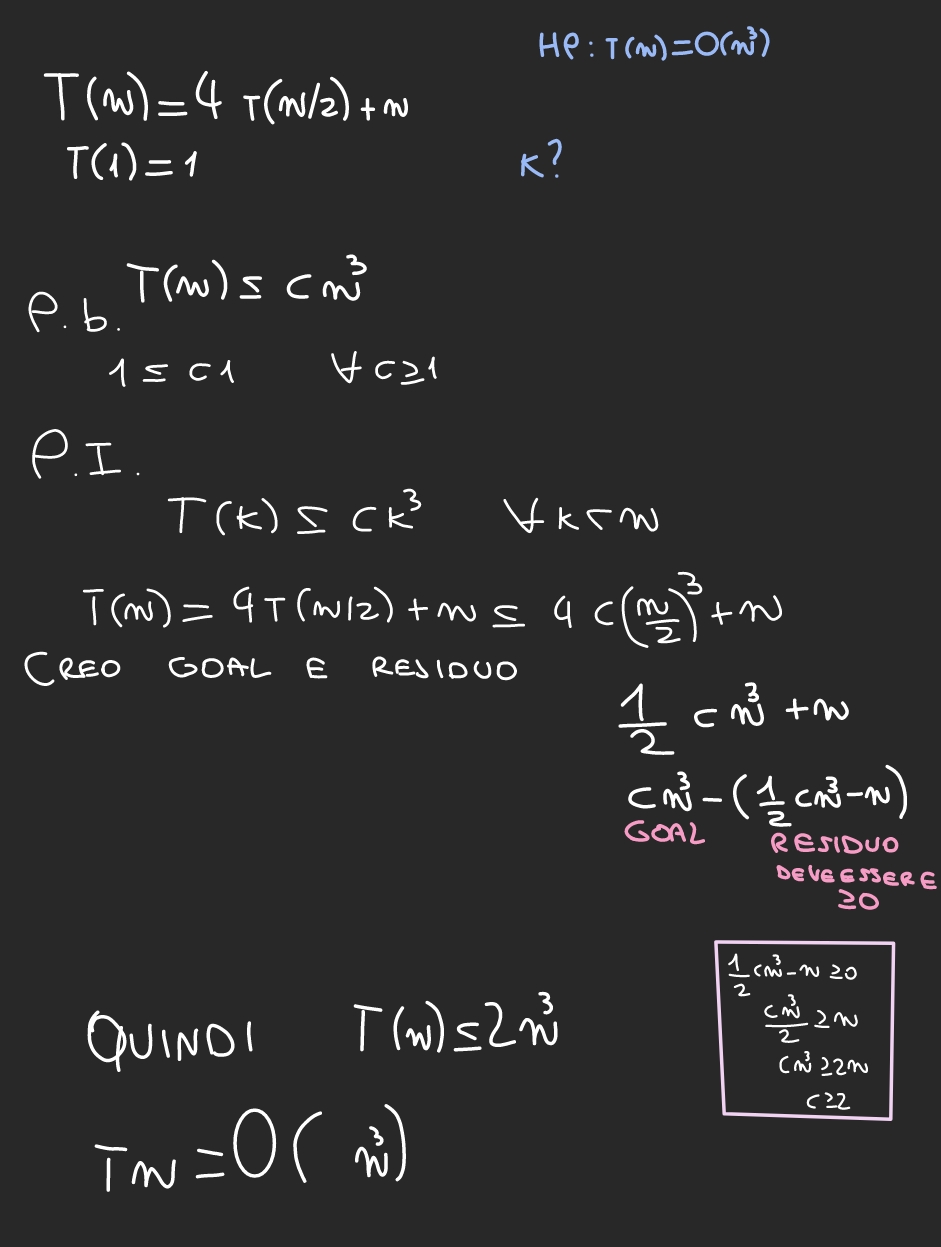 HP: T(n)=O(n³)
T(n)=4 T(n/2)+n
T(1)=1
K?
T(n) ≤ cn³
P.b.
1 ≤ c1 ∀ c≥1
P.I.
T(k) ≤ ck³ ∀k<n
T(n) = 4T(n/2)+n ≤ 4 c(n/2)³+n
CREO GOAL E RESIDUO
1/2 cn³ +n
cn³-(1/2 cn³-n)
GOAL RESIDUO
DEVE ESSERE
≥0
1/2 cn³-n ≥0
cn³/2 ≥n
cn³ ≥2n
c≥2
QUINDI T(n)≤2n³
Tn=O(n³)